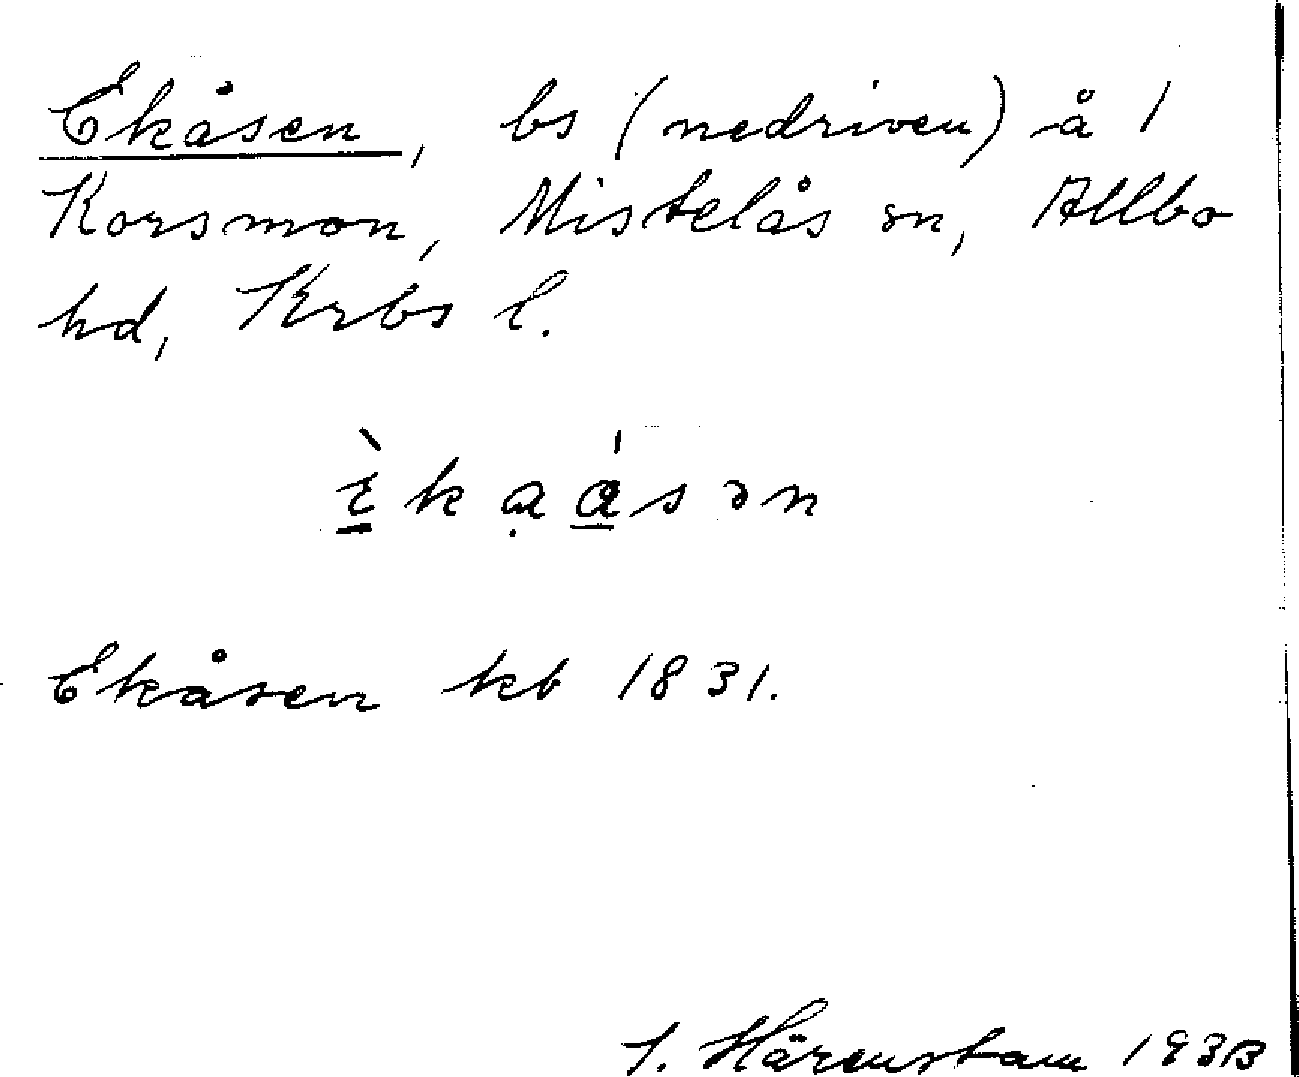 Ekåsen, bs (nedriven) å 1
Korsmon, Mistelås sn, Allbo
hd, Krbs l.
Ekåsen kb 1831.
Härenstam